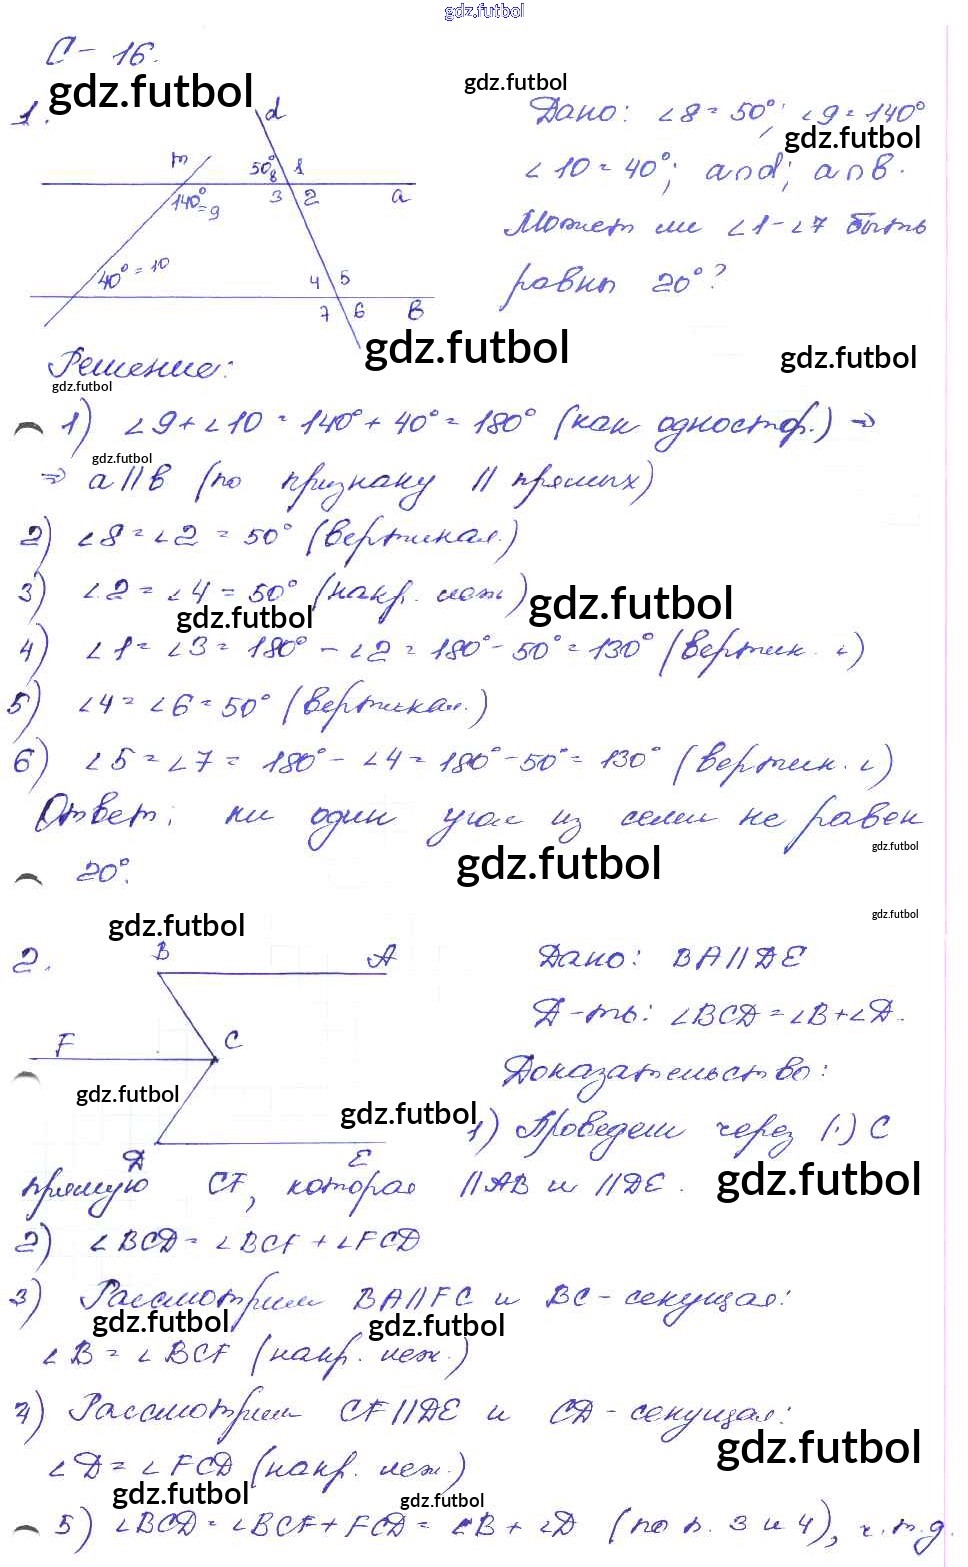 gdz.futbol
С - 16.
gdz.futbol
gdz.futbol
1.
d
m
50° 8
1
140° = 9
3
2
a
40° = 10
4
5
7
6
в
Дано: ∠8 = 50°; ∠9 = 140°
gdz.futbol
∠10 = 40°; a∩d; a∩в.
Может ли ∠1-∠7 быть
равны 20°?
gdz.futbol
gdz.futbol
Решение:
gdz.futbol
1) ∠9 + ∠10 = 140° + 40° = 180° (как одностор.) ⇒
gdz.futbol
⇒ a||в (по признаку || прямых)
2) ∠8 = ∠2 = 50° (вертикал.)
3) ∠2 = ∠4 = 50° (накр. леж)
gdz.futbol
gdz.futbol
4) ∠1 = ∠3 = 180° - ∠2 = 180° - 50° = 130° (вертик. ∠)
5) ∠4 = ∠6 = 50° (вертикал.)
6) ∠5 = ∠7 = 180° - ∠4 = 180° - 50° = 130° (вертик. ∠)
Ответ: ни один угол из семи не равен
gdz.futbol
gdz.futbol
20°.
gdz.futbol
gdz.futbol
2.
B
A
F
C
Д
E
gdz.futbol
gdz.futbol
Дано: BA||ДE
Д-ть: ∠BCД = ∠B + ∠Д.
Доказательство:
1) Проведем через (·) C
gdz.futbol
прямую CF, которая ||AB и ||ДE.
2) ∠BCД = ∠BCF + ∠FCД
3) Рассмотрим BA||FC и BC - секущая:
gdz.futbol
gdz.futbol
∠B = ∠BCF (накр. леж.)
4) Рассмотрим CF||ДE и CД - секущая:
gdz.futbol
∠Д = ∠FCД (накр. леж.)
gdz.futbol
gdz.futbol
5) ∠BCД = ∠BCF + FCД = ∠B + ∠Д (по п. 3 и 4), ч.т.д.